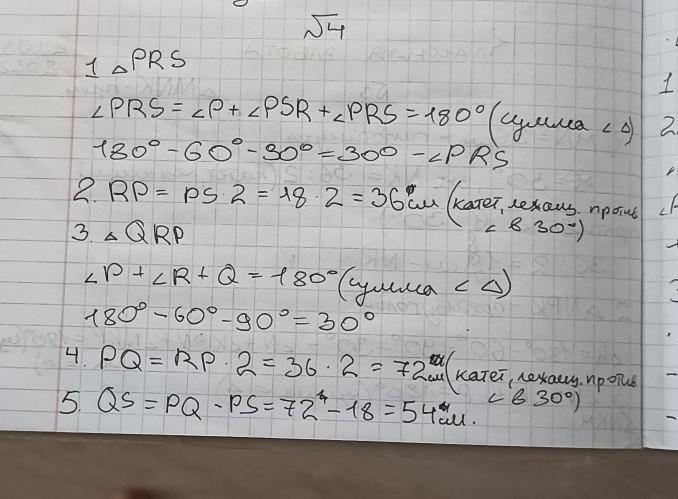 √4
1 △PRS
∠PRS = ∠P + ∠PSR + ∠PRS = 180° (сумма ∠ △)
180° - 60° - 90° = 30° - ∠PRS
2. RP = PS · 2 = 18 · 2 = 36 см (катет, лежащ. против
∠ в 30°)
3. △ QRP
∠P + ∠R + Q = 180° (сумма < △)
180° - 60° - 90° = 30°
4. PQ = RP · 2 = 36 · 2 = 72 см (катет, лежащ. против
∠ в 30°)
5. QS = PQ - PS = 72 - 18 = 54 см.